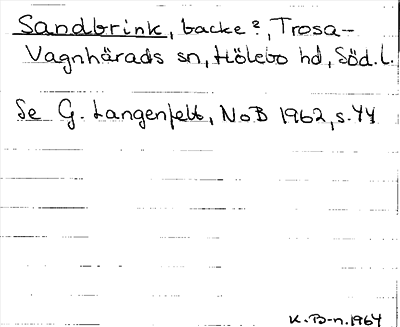 Sandbrink, backe?, Trosa-
Vagnhärads sn, Hölebo hd, Söd.l.
Se G. Langenfelt, NoB 1962, s.44
K.B-n.1964